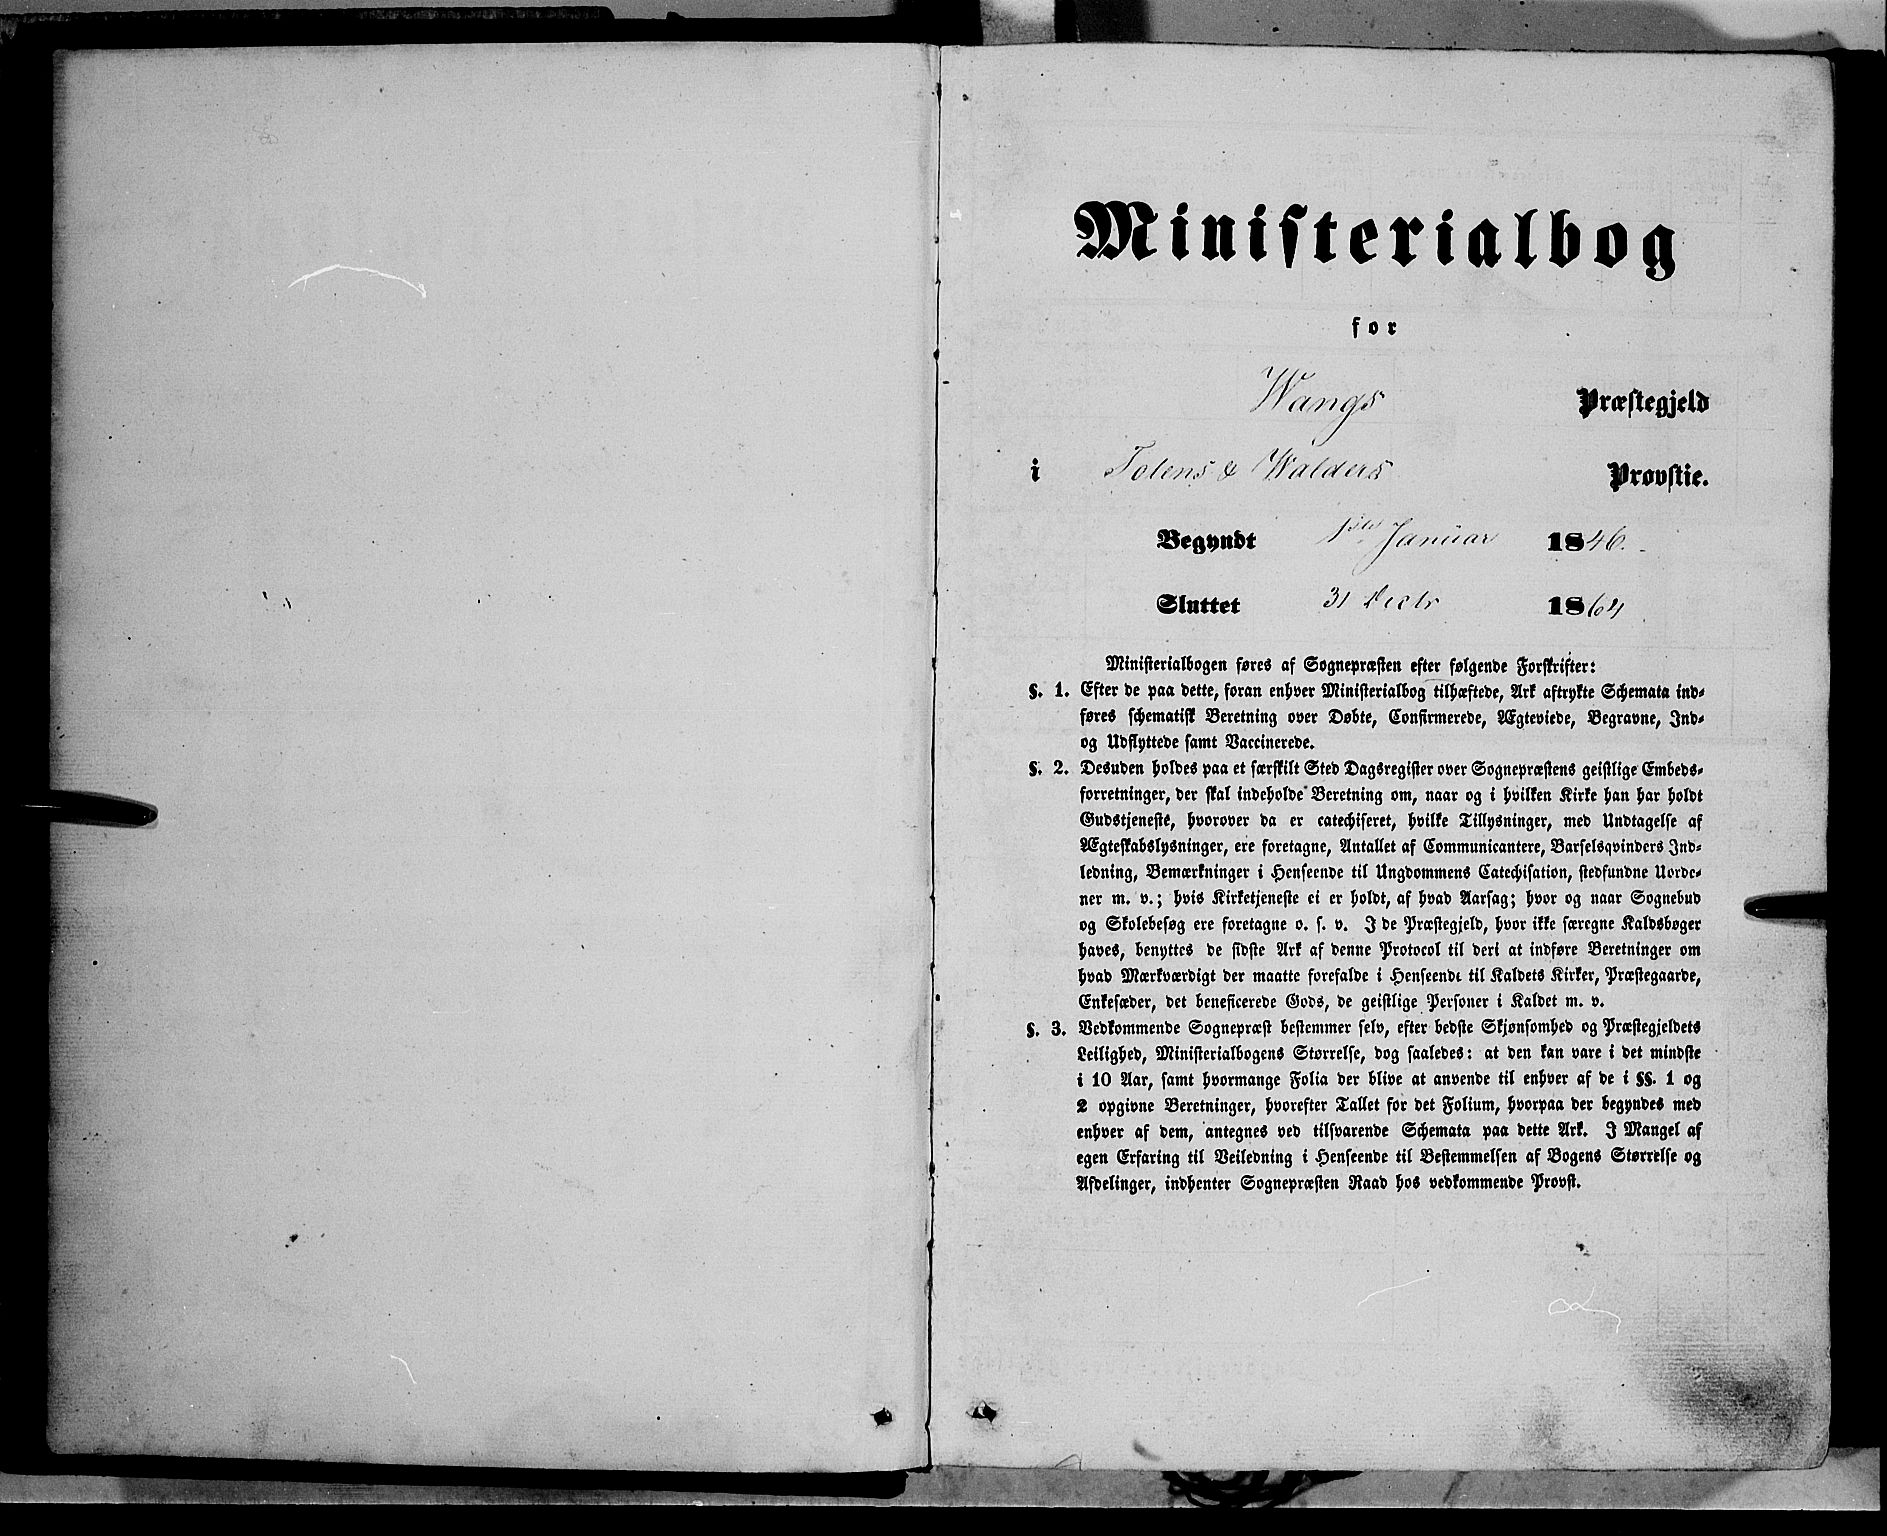 Ministerialbog
for
Wangs Præstegjeld
i Totens & Walders Provstie.
Begyndt 1ste Januar 1846.
Sluttet 31 Decbr 1864
Ministerialbogen føres af Sognepræsten efter følgende Forskrifter:
§. 1. Efter de paa dette, foran enhver Ministerialbog tilhæftede, Ark aftrykte Schemata ind-
føres schematisk Beretning over Døbte, Confirmerede, Ægteviede, Begravne, Ind-
og Udflyttede samt Vaccinerede.
§. 2. Desuden holdes paa et særskilt Sted Dagsregister over Sognepræstens geistlige Embeds-
forretninger, der skal indeholde Beretning om, naar og i hvilken Kirke han har holdt
Gudstjeneste, hvorover da er catechiseret, hvilke Tillysninger, med Undtagelse af
Ægteskabslysninger, ere foretagne, Antallet af Communicantere, Barselqvinders Ind-
ledning, Bemærkninger i Henseende til Ungdommens Catechisation, stedfundne Uorde-
ner m. v.; hvis Kirketjeneste ei er holdt, af hvad Aarsag; hvor og naar Sognebud
og Skolebesøg ere foretagne o. s. v. I de Præstegjeld, hvor ikke særegne Kaldsbøger
haves, benyttes de sidste Ark af denne Protocol til deri at indføre Beretninger om
hvad Mærkværdigt der maatte forefalde i Henseende til Kaldets Kirker, Præstegaarde,
Enkesæder, det beneficerede Gods, de geistlige Personer i Kaldet m. v.
§. 3. Vedkommende Sognepræst bestemmer selv, efter bedste Skjønsomhed og Præstegjeldets
Leilighed, Ministerialbogens Størrelse, dog saaledes: at den kan vare i det mindste
i 10 Aar, samt hvormange Folia der blive at anvende til enhver af de i §§. 1 og
2 opgivne Beretninger, hvorefter Tallet for det Folium, hvorpaa der begyndes med
enhver af dem, antegnes ved tilsvarende Schemata paa dette Ark. I Mangel af
egen Erfaring til Veiledning i Henseende til Bestemmelsen af Bogens Størrelse og
Afdelinger, indhenter Sognepræsten Raad hos vedkommende Provst.